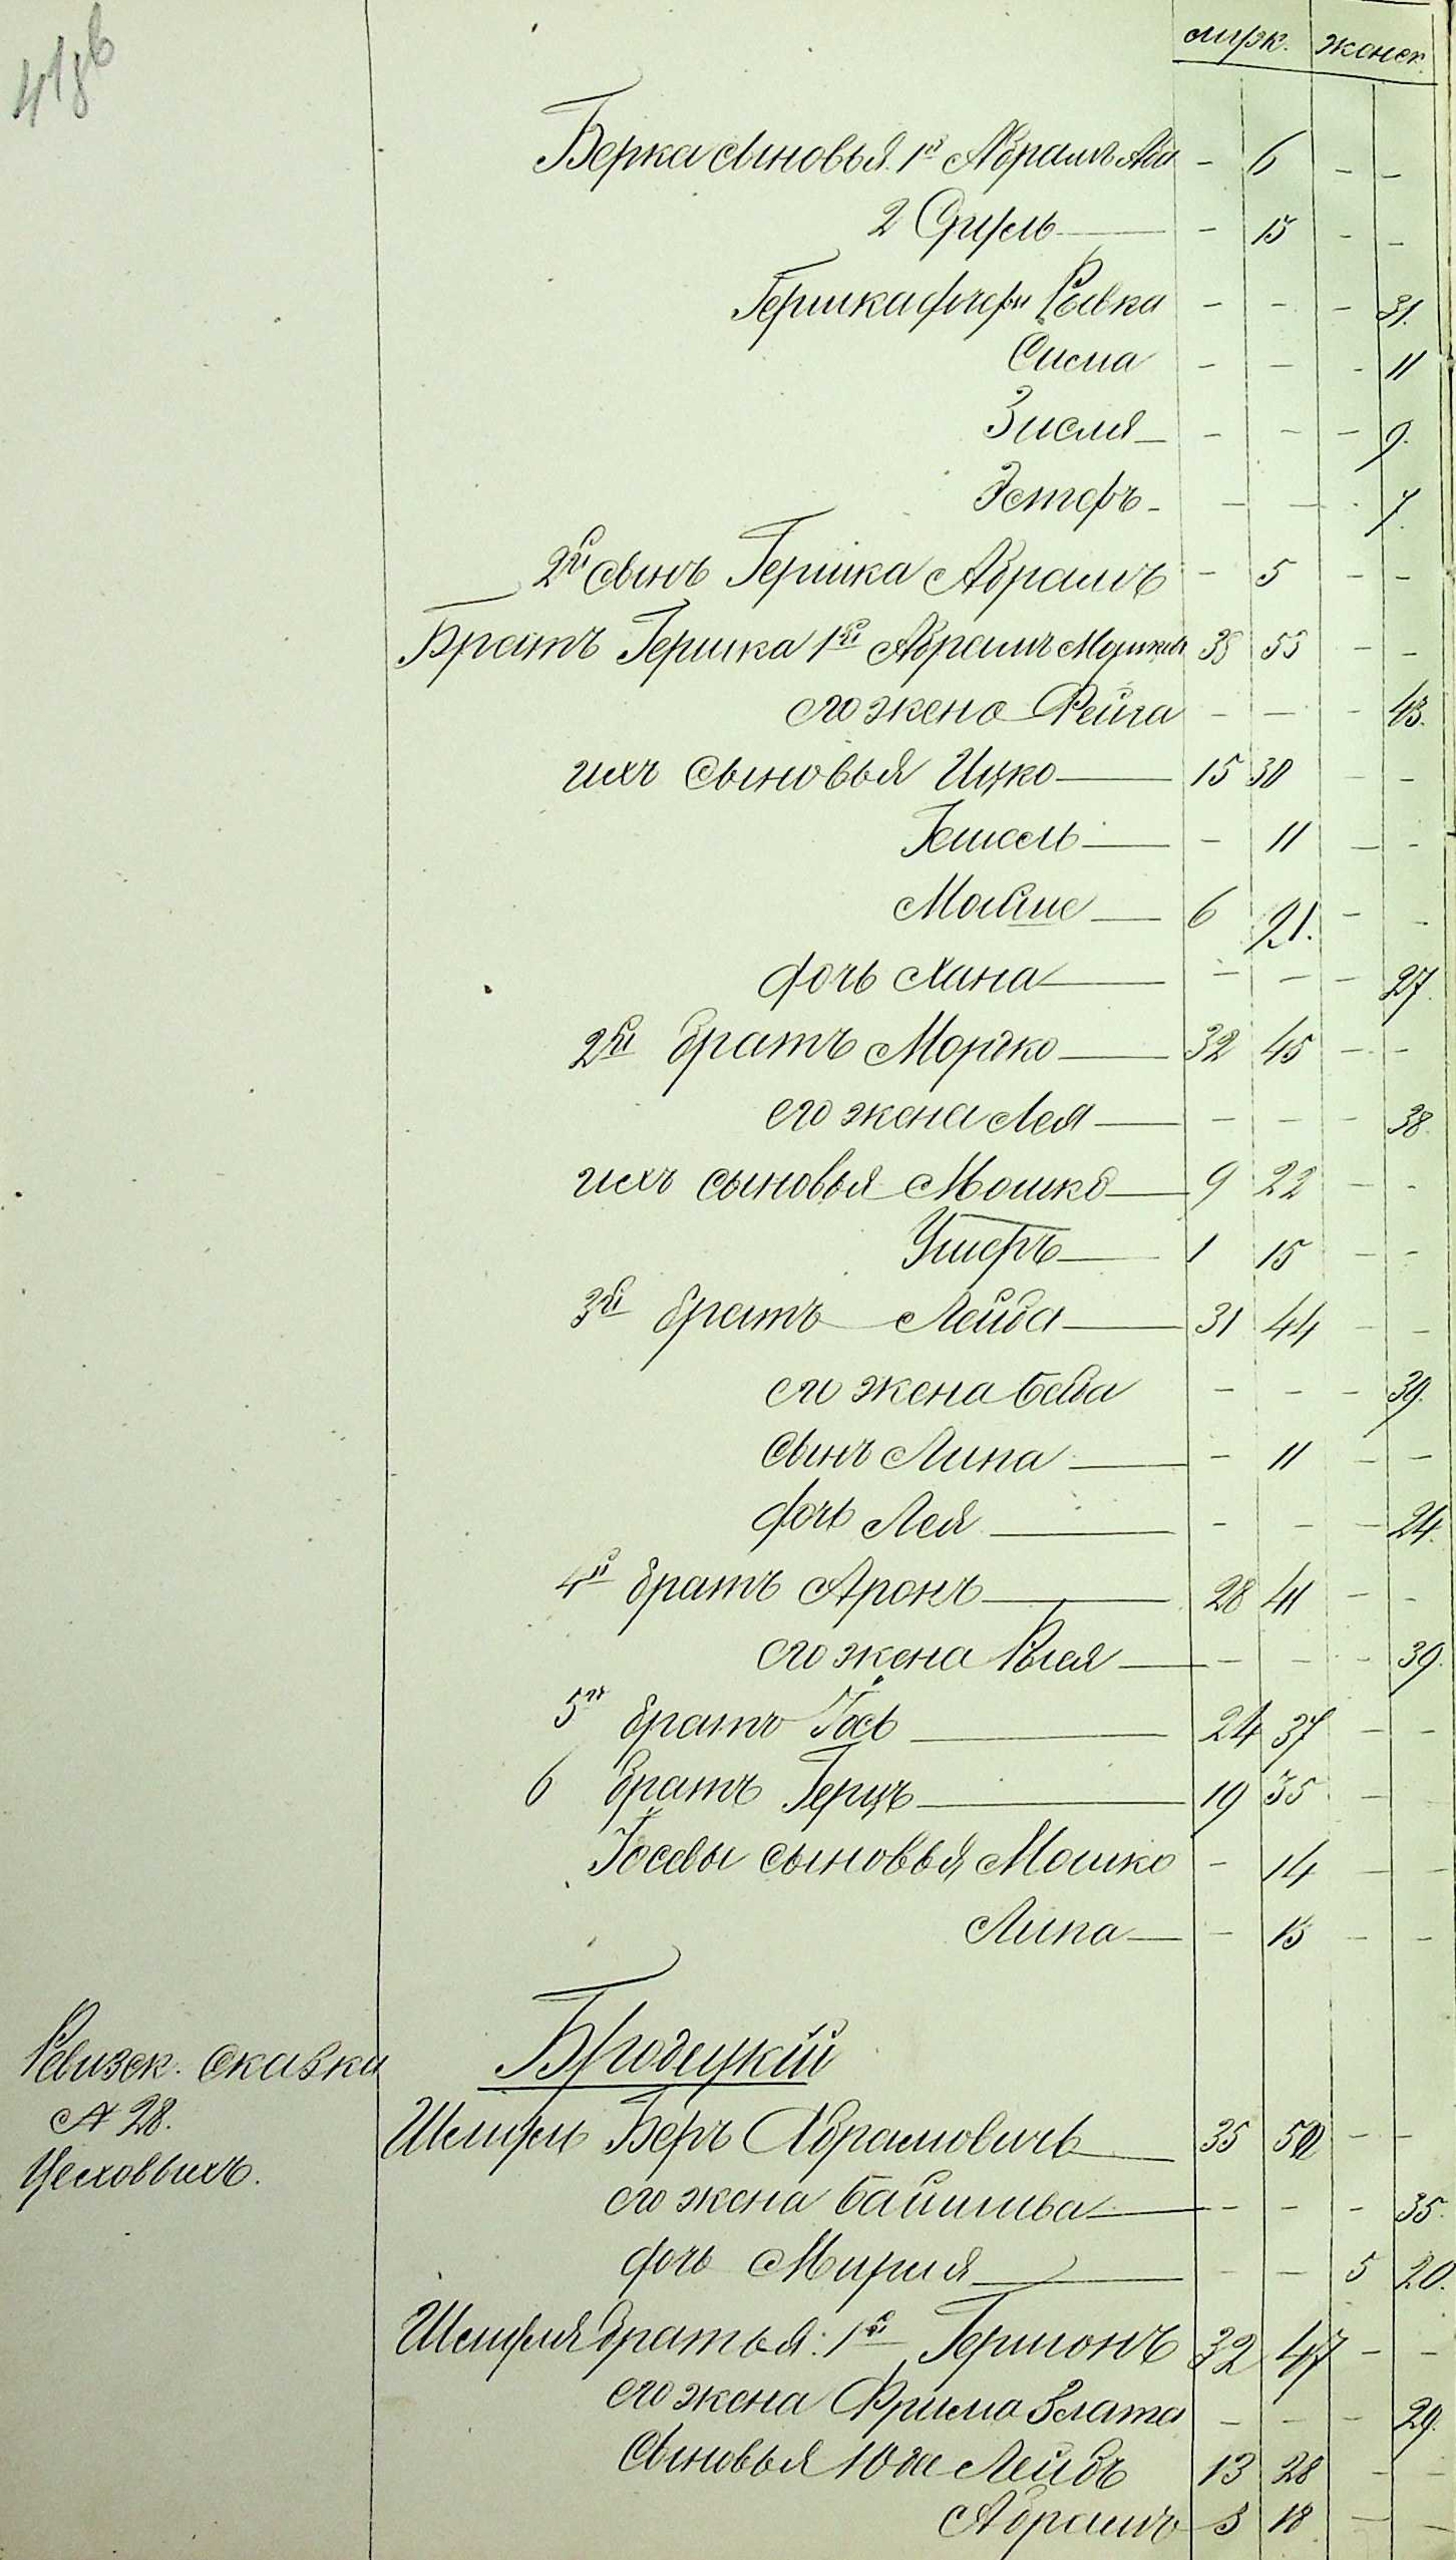 мужк. женск.
Берка сыновья 1й Абрамъ Аба - 6 - -
2 Сруль - 15 - -
Гершка дочери Ривка - - - 31.
Сима - - - 11
Зисля - - - 9.
Эстеръ - - - 7.
2й сынъ Гершка Абрамъ - 5 - -
Братъ Гершка 1й Абрамъ Мошко 38 53 - -
его жена Фейга - - - 43.
ихъ сыновья Ицко 15 30 - -
Гешель - 11 - -
Мойше 6 21. - -
дочь Хана - - - 27.
2й братъ Мордко 32 45 - -
его жена Лея - - - 38.
ихъ сыновья Мошко 9 22 - -
Ушеръ 1 15 - -
3й братъ Лейба 31 44 - -
его жена Бейла - - - 39.
сынъ Липа - 11 - -
дочь Лея - - - 24.
4й братъ Аронъ 28 41 - -
его жена - - - 39.
5й братъ Іось 24 37 - -
6 братъ Герцъ 19 35 - -
Іосевы сыновья Мошко - 14 - -
Липа - 13 - -
Бродецкій
Ревизск. сказки
№ 28.
Цеховыхъ.
Шмуль Беръ Абрамовичъ 35 50 - -
его жена - - - 35.
дочь Мирля - - 5 20.
Шмуля братья: 1й Гершонъ 32 47 - -
его жена Фрима Злата - - - 29.
сыновья Юда Лейбъ 13 28 - -
Абрамъ 3 18 - -